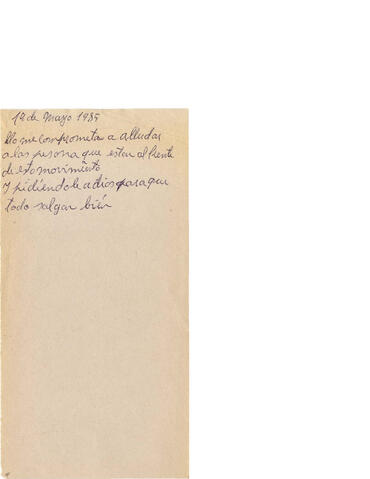 12 de Mayo 1985
Yo me comprometa a alludar
a las persona que estan al frente
de esto movimiento
y pidiendole a dios para que
todo salgar bién